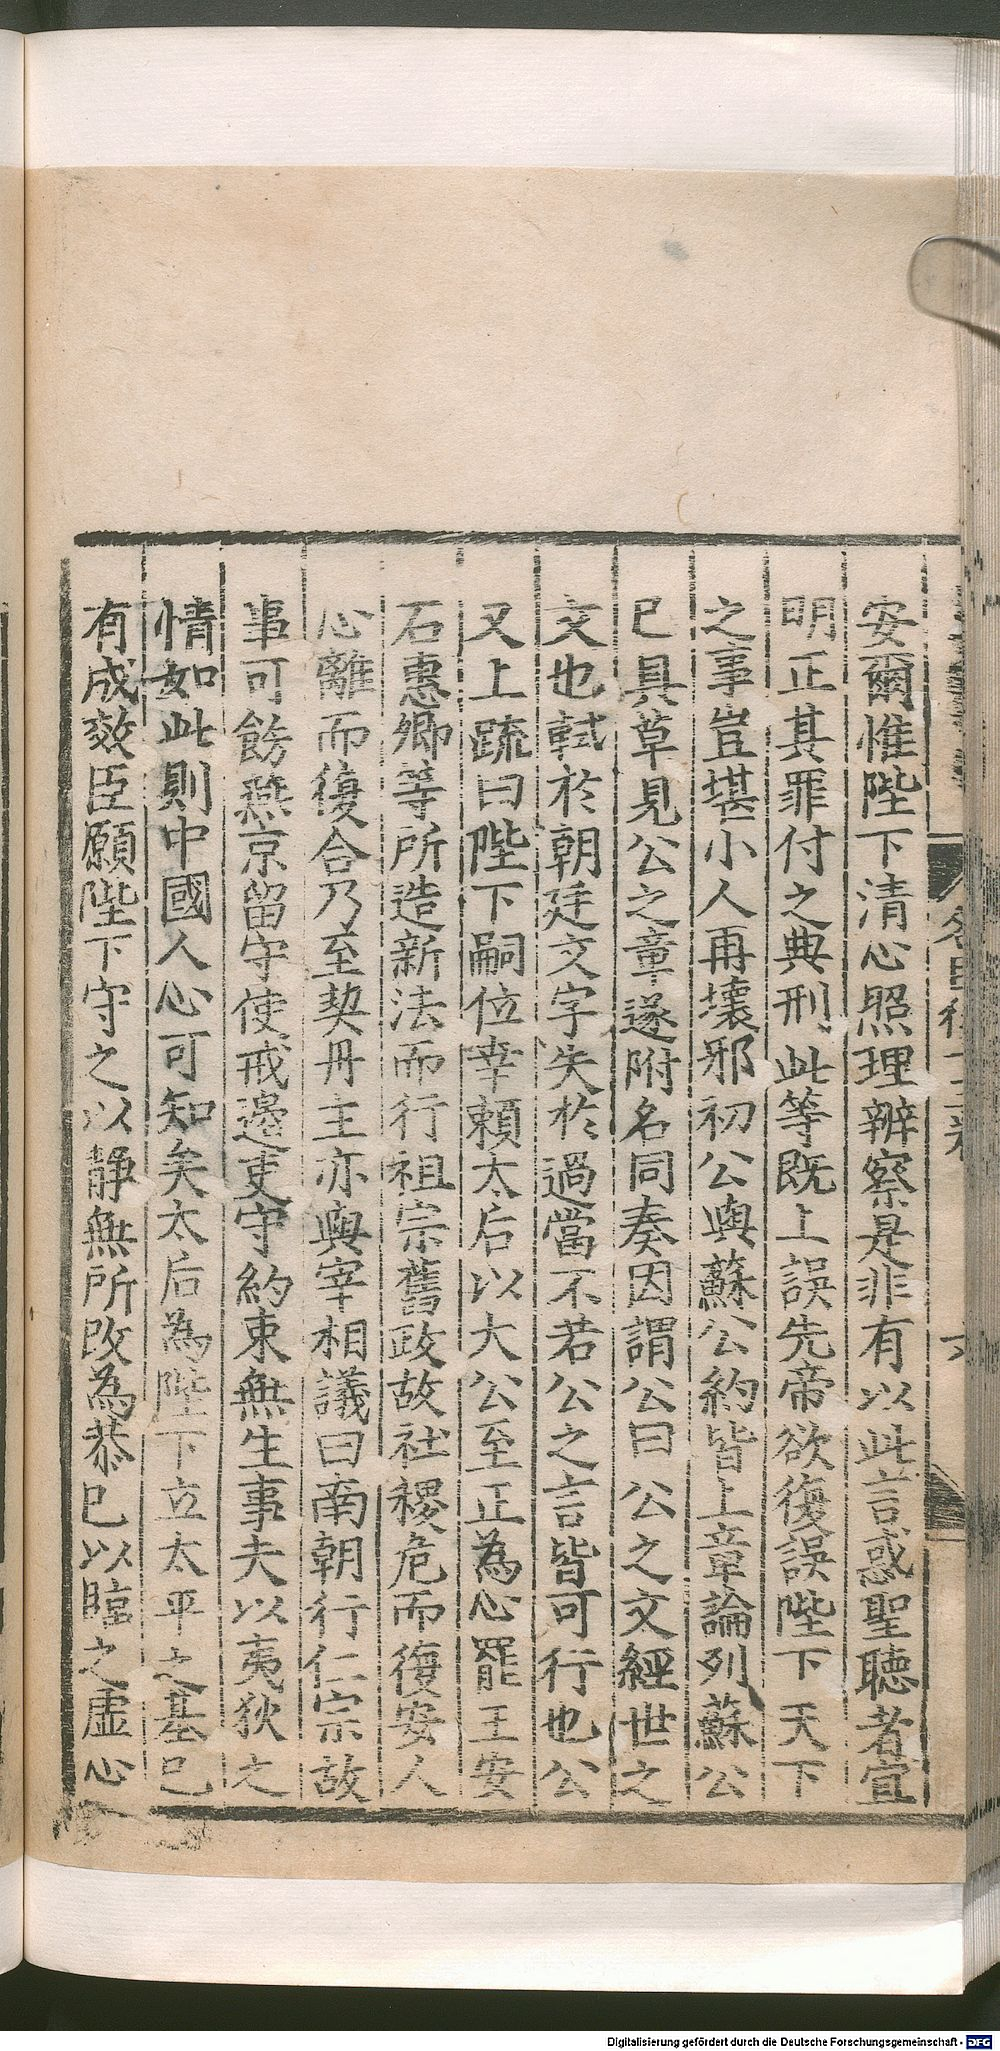 安爾惟陛下清心照理辨察是非有以此言惑聖聽者宜
明正其罪付之典刑此等既上誤先帝欲復誤陛下天下
之事豈堪小人再壞邪初公與蘇公約皆上章論列蘇公
已具草見公之章遂附名同奏因謂公曰公之文經世之
文也軾於朝廷文字失於過當不若公之言皆可行也公
又上疏曰陛下嗣位幸賴太后以大公至正為心罷王安
石惠卿等所造新法而行祖宗舊政故社稷危而復安人
心離而復合乃至契丹主亦與宰相議曰南朝行仁宗故
事可飭燕京留守使戒邉吏守約束無生事夫以夷狄之
情如此則中國人心可知矣太后為陛下立太平之基已
有成效臣願陛下守之以靜無所改為恭己以臨之虛心
Digitalisierung gefördert durch die Deutsche Forschungsgemeinschaft - DFG